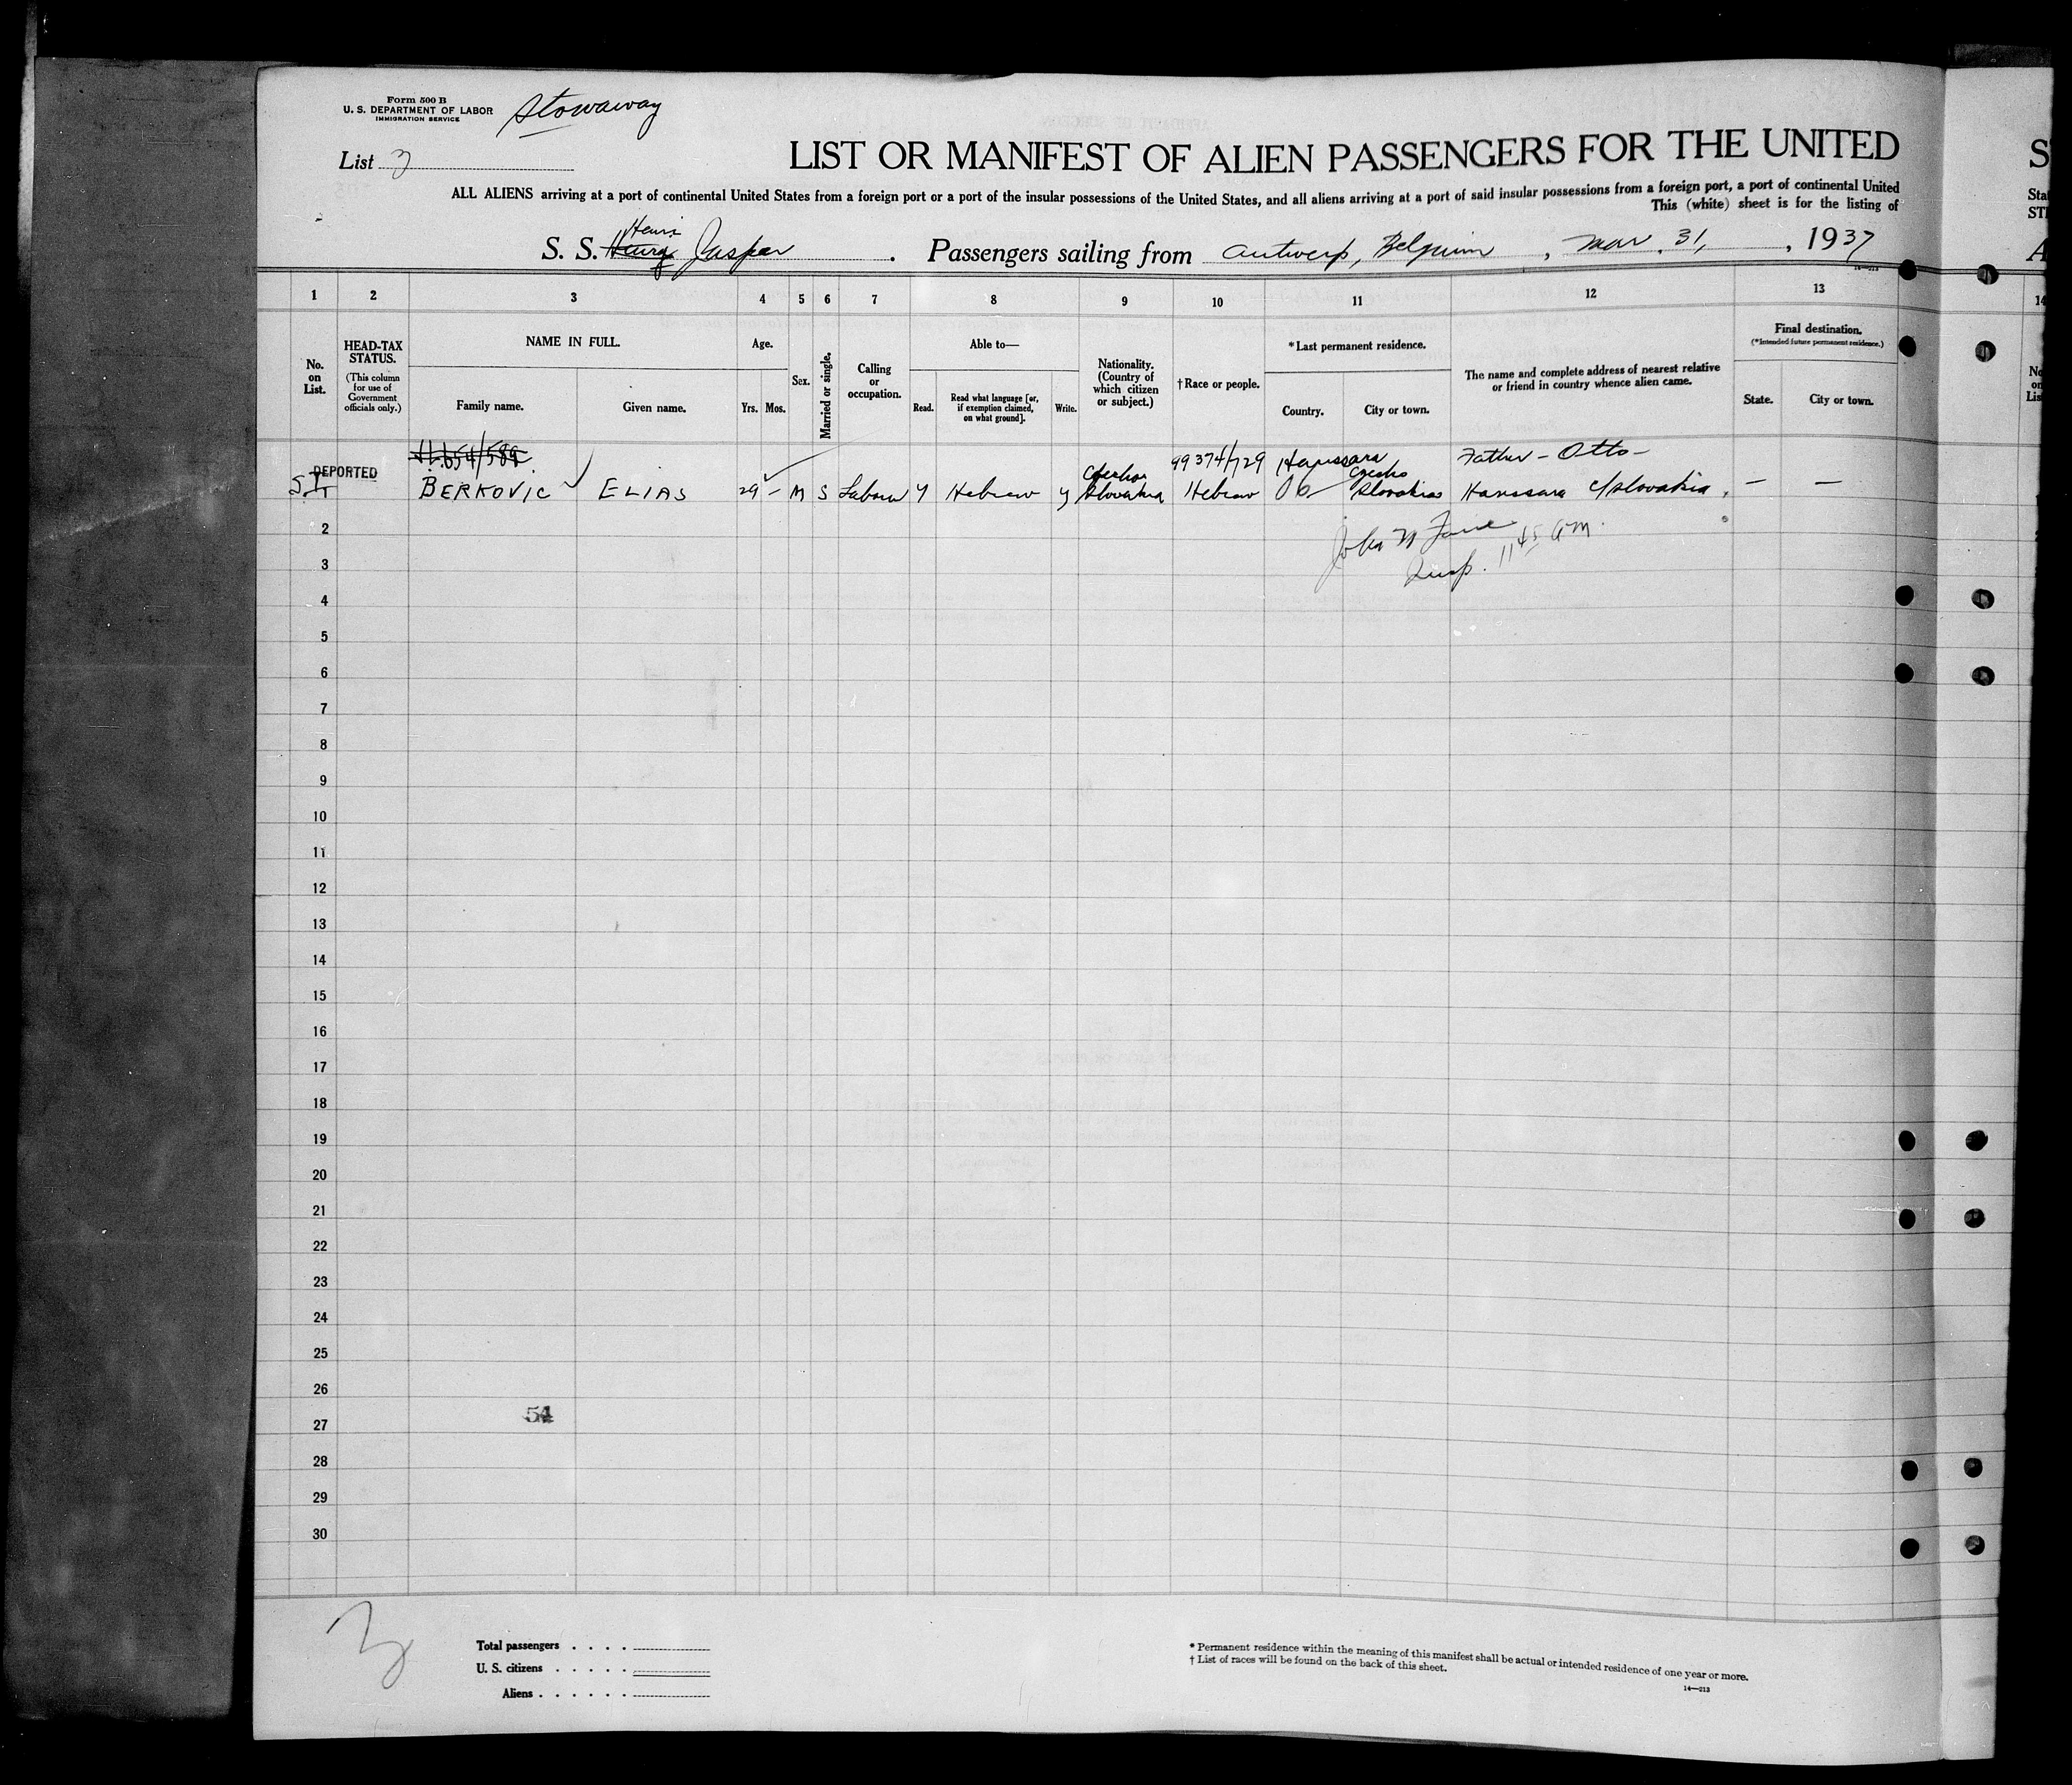 Form 500 B
U. S. DEPARTMENT OF LABOR
IMMIGRATION SERVICE
Stowaway
List 3
LIST OR MANIFEST OF ALIEN PASSENGERS FOR THE UNITED
ALL ALIENS arriving at a port of continental United States from a foreign port or a port of the insular possessions of the United States, and all aliens arriving at a port of said insular possessions from a foreign port, a port of continental United
This (white) sheet is for the listing of
Henri
S. S. Henry Jaspar . Passengers sailing from Antwerp, Belgium , Mar. 31, , 1937
14—213
1 2 3 4 5 6 7 8 9 10 11 12 13
No. on List.
HEAD-TAX STATUS.
(This column for use of Government officials only.)
NAME IN FULL.
Family name. Given name.
Age.
Yrs. Mos.
Sex.
Married or single.
Calling or occupation.
Able to—
Read. Read what language [or, if exemption claimed, on what ground]. Write.
Nationality. (Country of which citizen or subject.)
†Race or people.
*Last permanent residence.
Country. City or town.
The name and complete address of nearest relative or friend in country whence alien came.
Final destination.
(*Intended future permanent residence.)
State. City or town.
99374/729 Father – Otto –
DEPORTED
BERKOVIC ELIAS 29 – M S Labour Y Hebrew Y Czecho Slovakia Hebrew Czecho Slovakia C/Slovakia. – –
John
Insp. 11 45 AM.
2
3
4
5
6
7
8
9
10
11
12
13
14
15
16
17
18
19
20
21
22
23
24
25
26
27
54
28
29
30
3
Total passengers . . . .
U. S. citizens . . . . .
Aliens . . . . . .
* Permanent residence within the meaning of this manifest shall be actual or intended residence of one year or more.
† List of races will be found on the back of this sheet.
14—213
S
Sta
ST
A
14
No
on
Lis